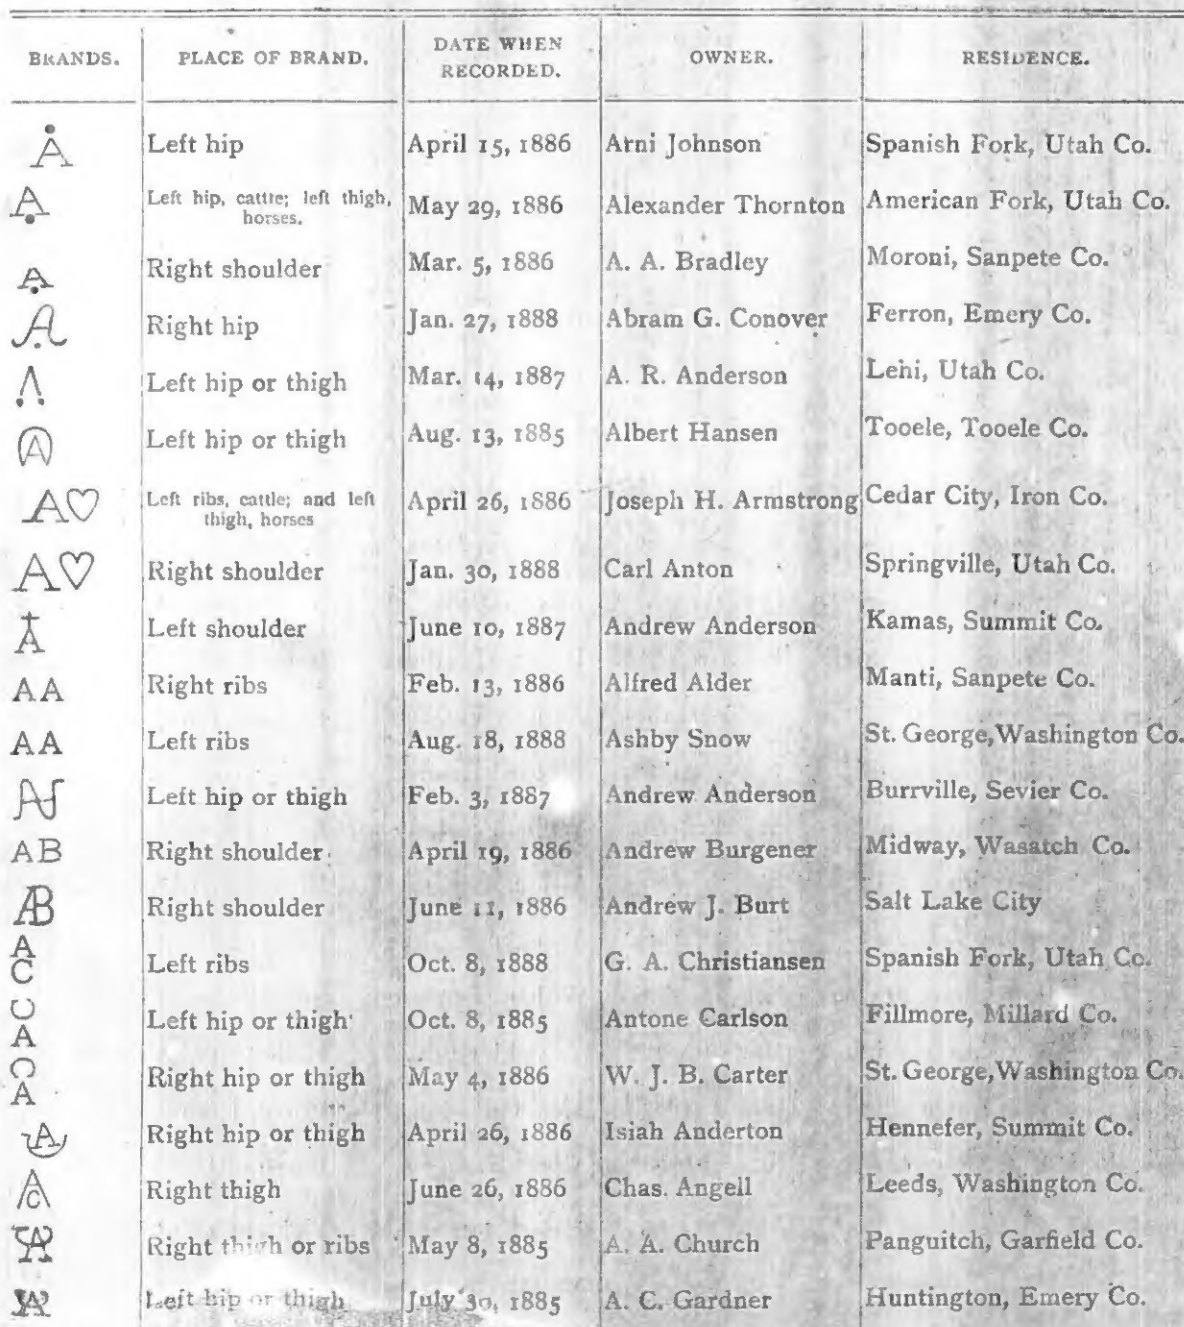 BRANDS. PLACE OF BRAND. DATE WHEN RECORDED. OWNER. RESIDENCE.
A Left hip April 15, 1886 Arni Johnson Spanish Fork, Utah Co.
A Left hip, cattle; left thigh, horses. May 29, 1886 Alexander Thornton American Fork, Utah Co.
A Right shoulder Mar. 5, 1886 A. A. Bradley Moroni, Sanpete Co.
A Right hip Jan. 27, 1888 Abram G. Conover Ferron, Emery Co.
Left hip or thigh Mar. 14, 1887 A. R. Anderson Lehi, Utah Co.
A Left hip or thigh Aug. 13, 1885 Albert Hansen Tooele, Tooele Co.
A♡ Left ribs, cattle; and left thigh, horses April 26, 1886 Joseph H. Armstrong Cedar City, Iron Co.
A♡ Right shoulder Jan. 30, 1888 Carl Anton Springville, Utah Co.
A Left shoulder June 10, 1887 Andrew Anderson Kamas, Summit Co.
AA Right ribs Feb. 13, 1886 Alfred Alder Manti, Sanpete Co.
AA Left ribs Aug. 18, 1888 Ashby Snow St. George, Washington Co.
Left hip or thigh Feb. 3, 1887 Andrew Anderson Burrville, Sevier Co.
AB Right shoulder April 19, 1886 Andrew Burgener Midway, Wasatch Co.
AB Right shoulder June 11, 1886 Andrew J. Burt Salt Lake City
A C Left ribs Oct. 8, 1888 G. A. Christiansen Spanish Fork, Utah Co.
C A Left hip or thigh Oct. 8, 1885 Antone Carlson Fillmore, Millard Co.
C A Right hip or thigh May 4, 1886 W. J. B. Carter St. George, Washington Co.
A Right hip or thigh April 26, 1886 Isiah Anderton Hennefer, Summit Co.
A C Right thigh June 26, 1886 Chas. Angell Leeds, Washington Co.
Right thigh or ribs May 8, 1885 A. A. Church Panguitch, Garfield Co.
Left hip or thigh July 30, 1885 A. C. Gardner Huntington, Emery Co.